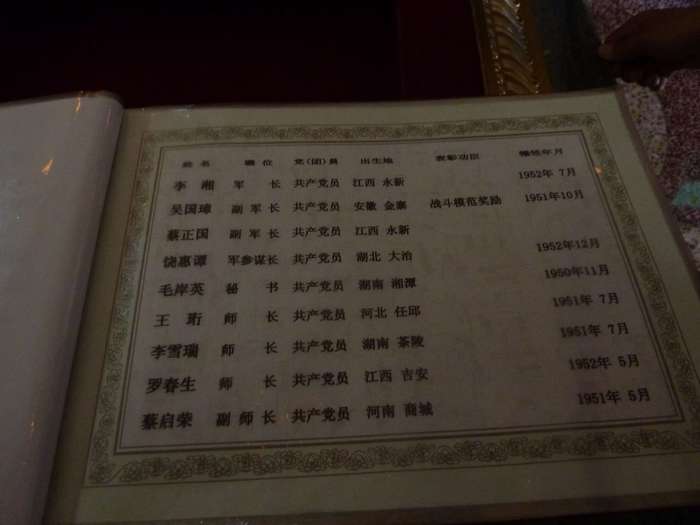 姓 名 职 位 党(团)员 出生地 表彰功臣 牺牲年月
李 湘 军 长 共产党员 江西 永新 1952年 7月
吴国璋 副 军 长 共产党员 安徽 金寨 战斗模范奖励 1951年10月
蔡正国 副 军 长 共产党员 江西 永新
饶惠谭 军参谋长 共产党员 湖北 大冶 1952年12月
毛岸英 秘 书 共产党员 湖南 湘潭 1950年11月
王 珩 师 长 共产党员 河北 任邱 1951年 7月
李雪瑞 师 长 共产党员 湖南 茶陵 1951年 7月
罗春生 师 长 共产党员 江西 吉安 1952年 5月
蔡启荣 副 师 长 共产党员 河南 商城 1951年 5月